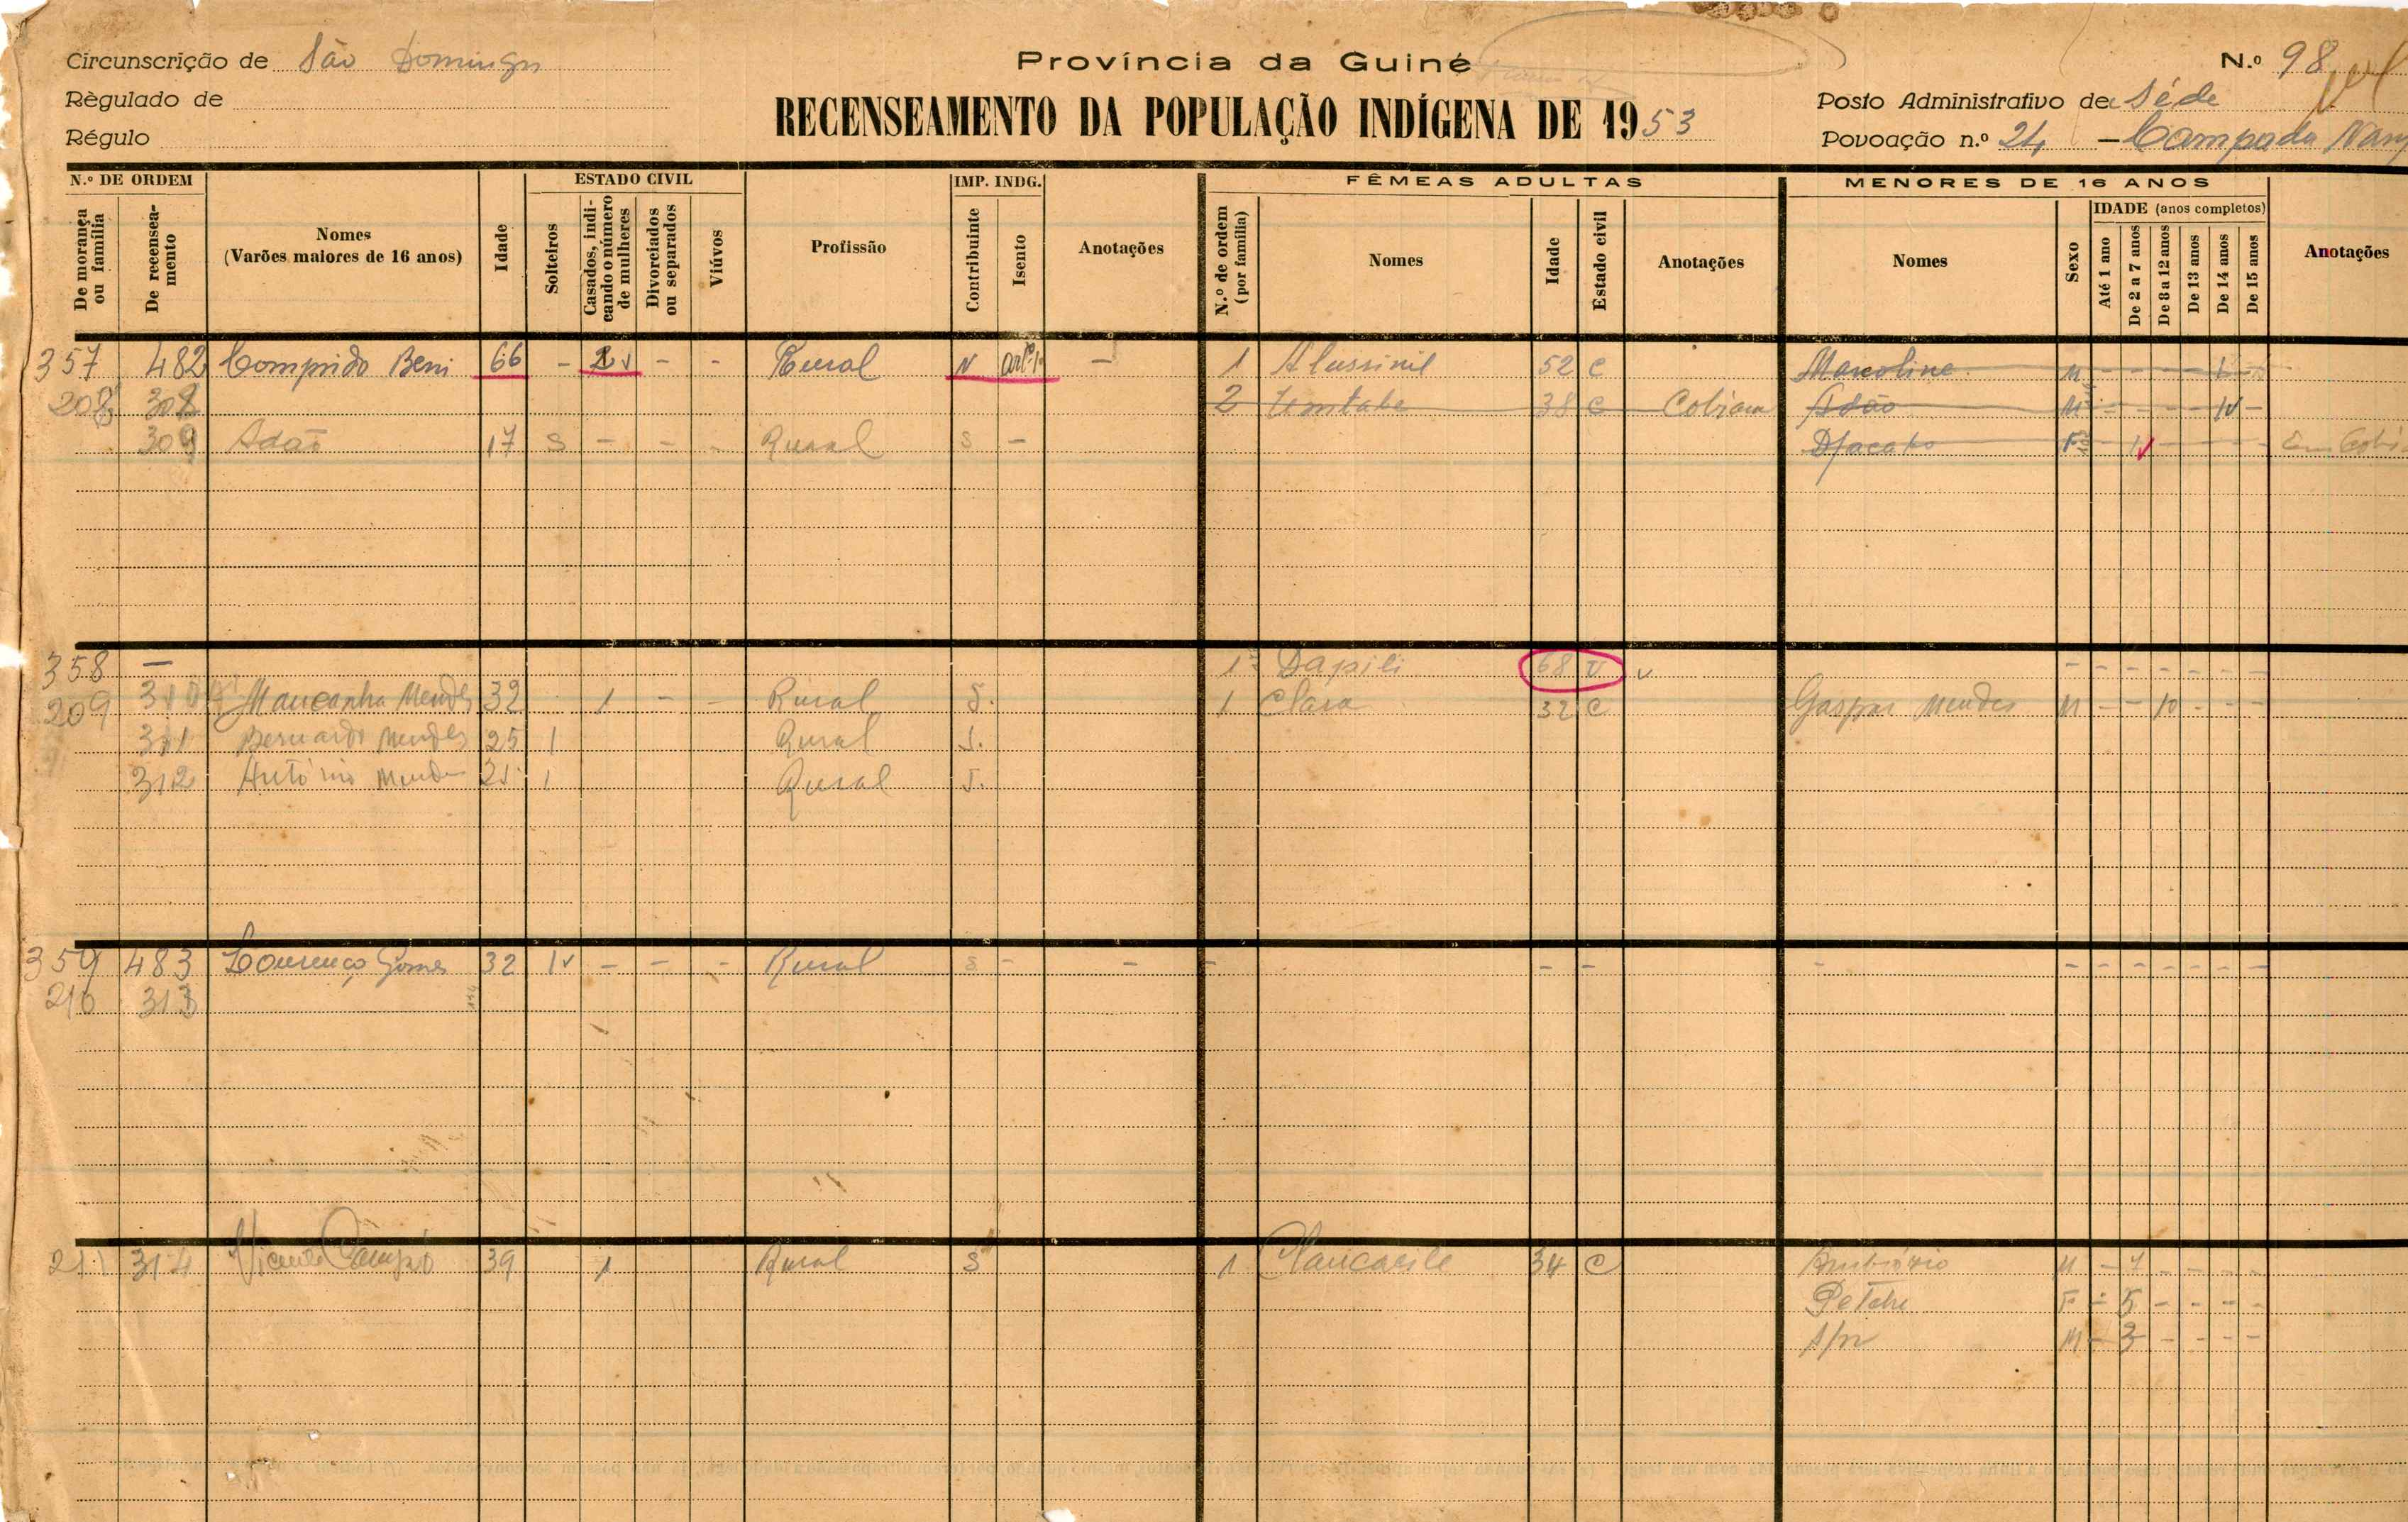 Circunscrição de São Domingos
Província da Guiné
N.º 98
Règulado de
RECENSEAMENTO DA POPULAÇÃO INDÍGENA DE 1953
Posto Administrativo de Séde
Régulo
Povoação n.º 24 - Campada
N.º DE ORDEM
ESTADO CIVIL
IMP. INDG.
FÊMEAS ADULTAS
MENORES DE 16 ANOS
De morança ou família
De recensea-mento
Nomes (Varões maiores de 16 anos)
Idade
Solteiros
Casados, indi-cando o número de mulheres
Divorciados ou separados
Viúvos
Profissão
Contribuinte
Isento
Anotações
N.º de ordem (por família)
Nomes
Idade
Estado civil
Anotações
Nomes
Sexo
IDADE (anos completos)
Até 1 ano
De 2 a 7 anos
De 8 a 12 anos
De 13 anos
De 14 anos
De 15 anos
Anotações
357 482 Comprido Beni 66 - - - Rural N - 1 Alussinil 52 C Marcoline M
208 308 2 38 C Adão M
309 Adão 17 S - - - Rural S - F
358 - 1 Dapili 68 V
209 Maucanha Mendes 32 1 - - Rural S. 1 Clara 32 C Gaspar Mendes M - - 10 - - -
311 Bernardo Mendes 25 1 Rural S.
312 António Mendes 21 1 Rural S.
359 483 Lourenço Gomes 32 1 - - - Rural S - - - - - - - - - - - -
210 313
211 314 Vicente 39 1 Rural S 1 34 C M - 7 - - - -
F - 5 - - - -
s/n M - 3 - - - -